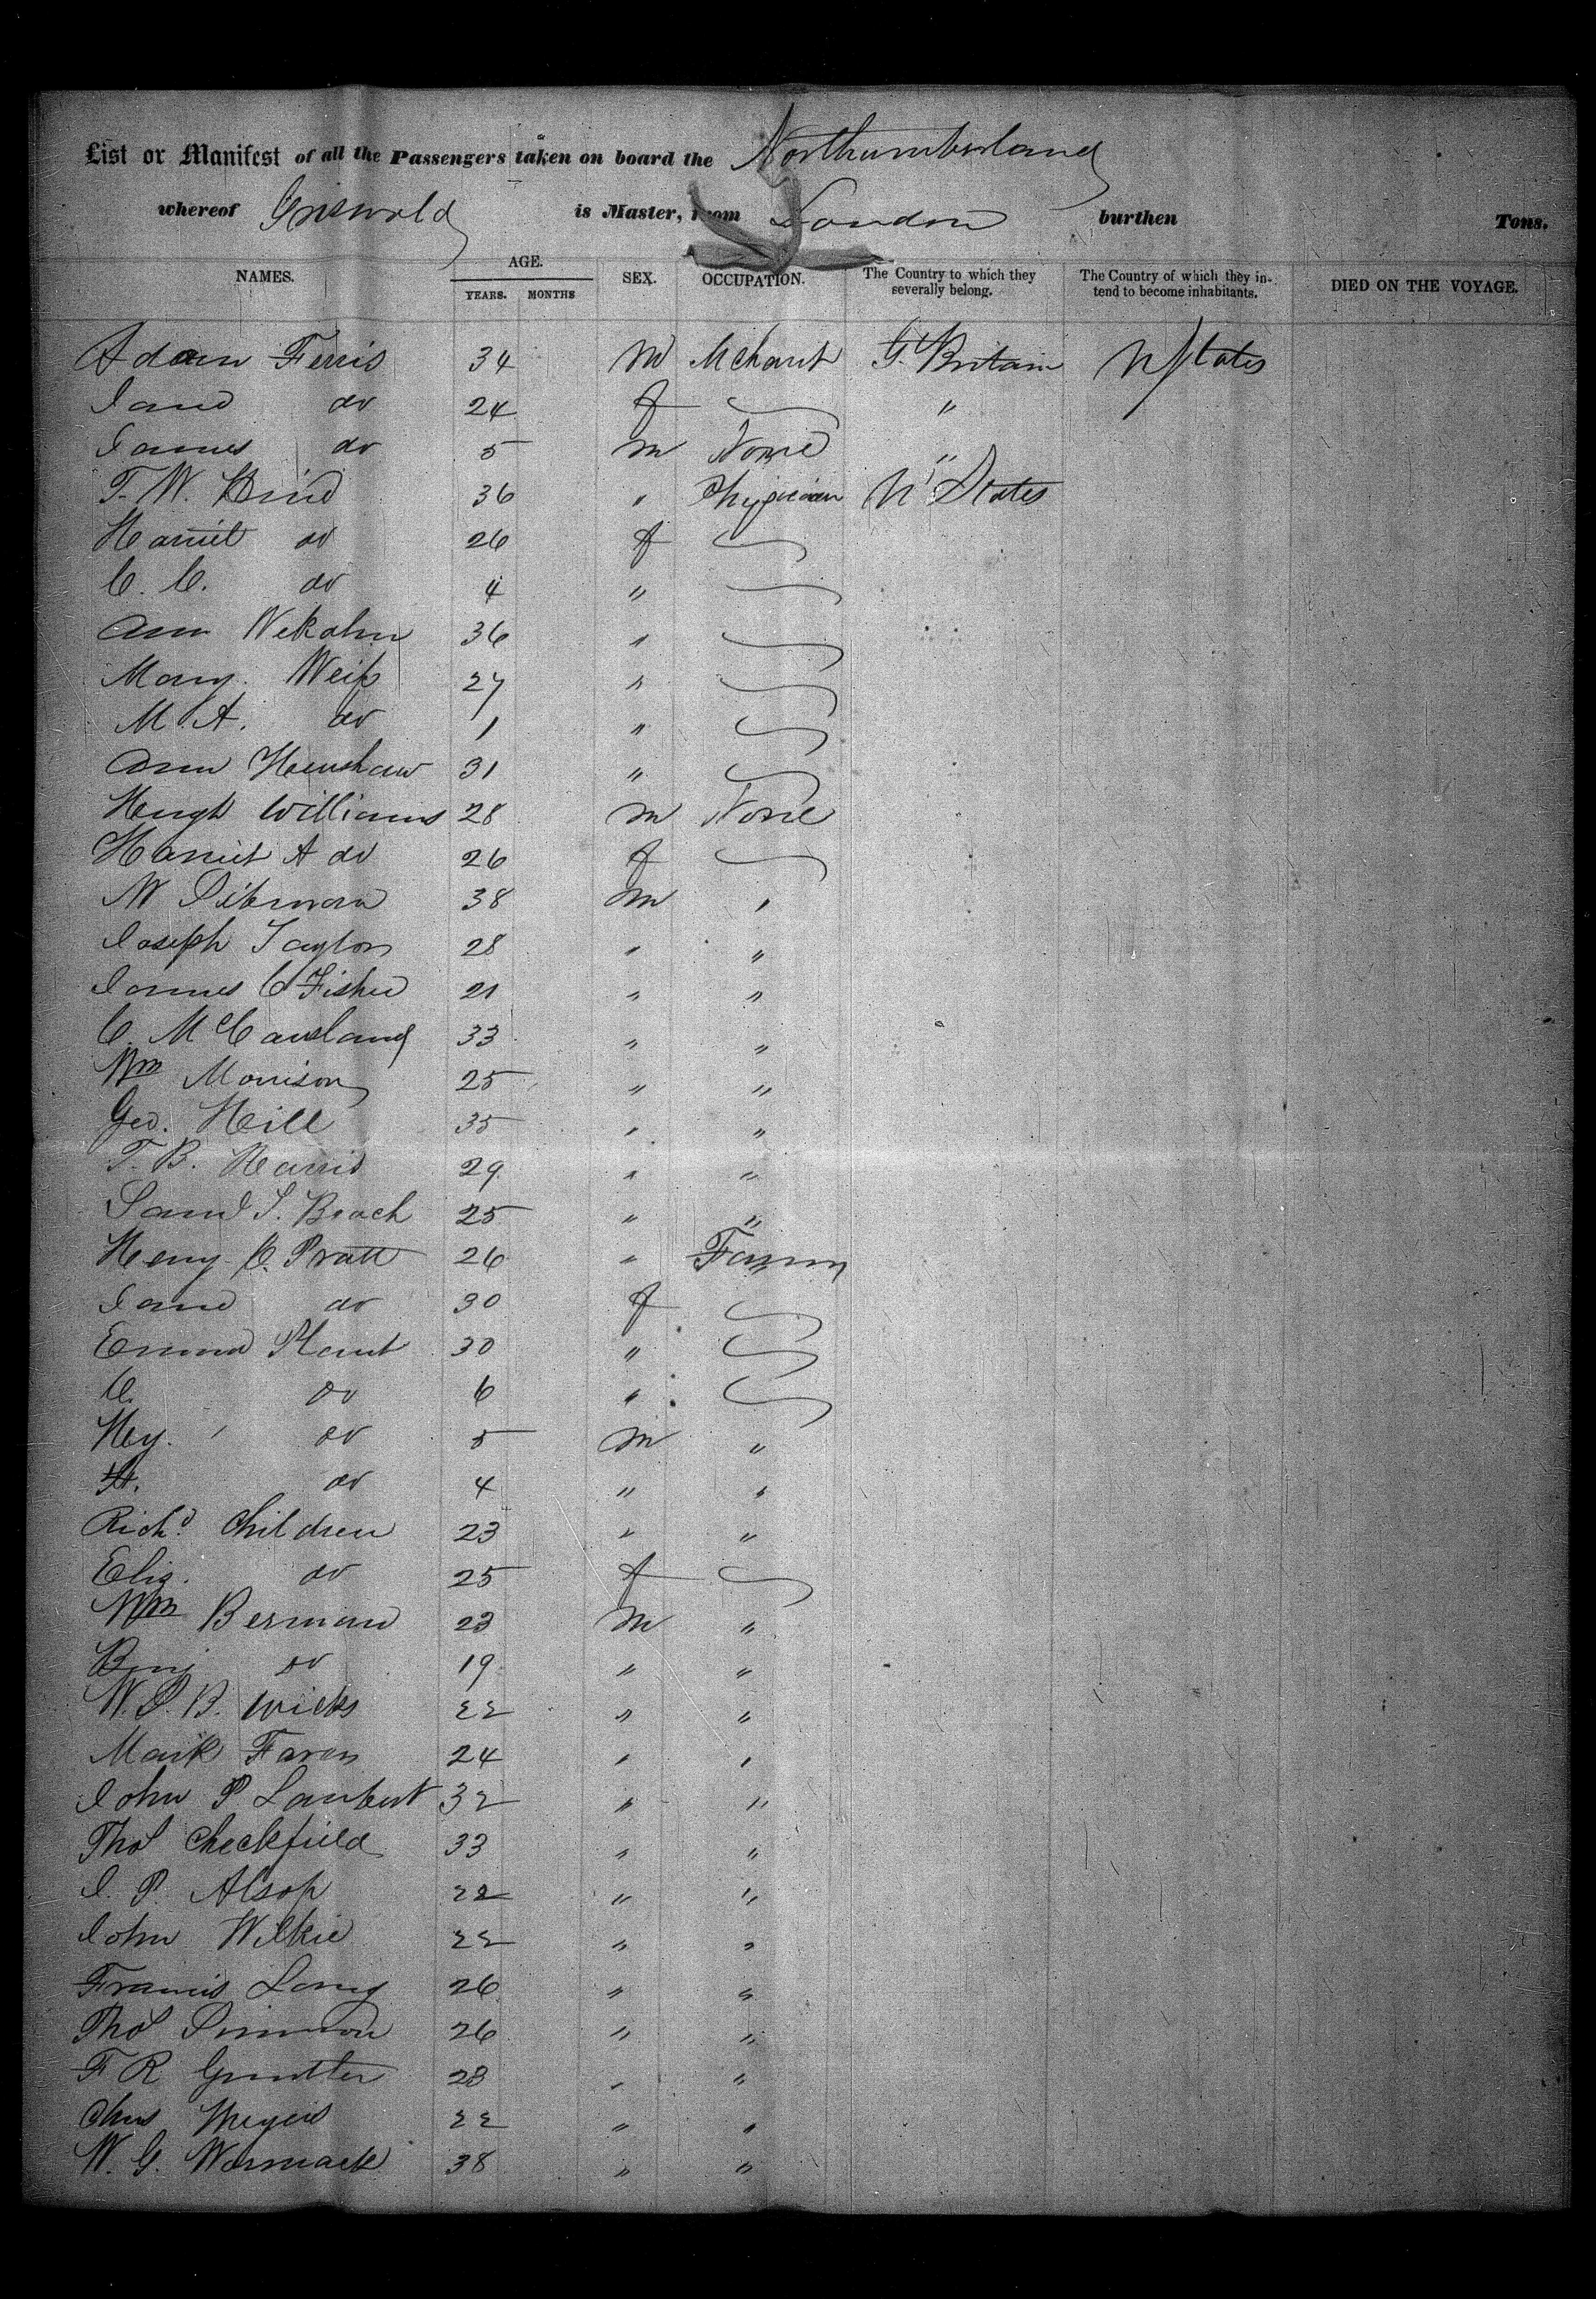 List or Manifest of all the Passengers taken on board the Northumberland
whereof Griswold is Master, from London burthen Tons.
NAMES. AGE. YEARS. MONTHS SEX. OCCUPATION. The Country to which they severally belong. The Country of which they intend to become inhabitants. DIED ON THE VOYAGE.
Adam Ferris 34 M Mchant G. Britain U States
Jane do 24 f "
James do 5 m None "
T. W. 36 " Physician U States
Harriet do 26 f
C. C. do 4 "
Ann 36 "
Mary Weiss 27 "
M. A. do 1 "
Ann Henshaw 31 "
Hugh Williams 28 m None
Harriet A do 26 f
W 38 m "
Joseph Taylor 28 " "
James C Fisher 21 " "
C. McCausland 33 " "
Wm Morrison 25 " "
Geo. Hill 35 " "
T. B. Harris 29 " "
Saml S. Beach 25 " "
Henry C. Pratt 26 " Farmr
Jane do 30 f
Emma Plant 30 "
C. do 6 "
Hy. do 5 m "
H. do 4 " "
Richd Children 23 " "
Eliz. do 25 f
Wm Berman 23 m "
Benj do 19 " "
W. P. B. Wicks 22 " "
Mark Faron 24 " "
John P Lambert 32 " "
Thos Checkfield 33 " "
J. P. Alsop 22 " "
John Wilkie 22 " "
Francis Long 26 " "
Thos 26 " "
F R Gunther 28 " "
Chas Meyers 22 " "
W. G. Warmack 38 " "